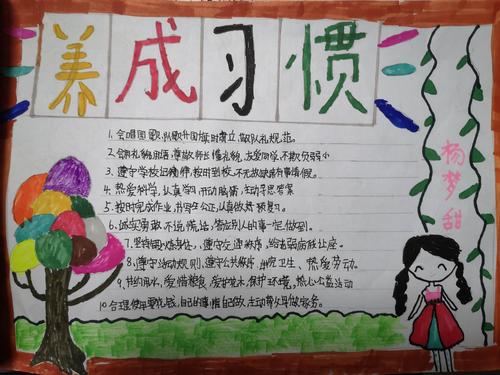 养成习惯
1、会唱国歌,队歌升国旗时肃立,做队礼规范。
2、会用礼貌用语,尊敬师长懂礼貌,友爱同学,不欺负弱小
3、遵守学校纪律,按时到校,不无故缺席有事请假。
4、热爱科学,认真学习,开动脑筋,主动寻思答案
5、按时完成作业,书写公正,认真做好预习。
6、诚实勇敢,不说慌话,答应别人的事一定做到。
7、坚持锻炼身体,遵守交通秩序,给老弱病残让座。
8、遵守活动规则,遵守公共秩序,讲究卫生、热爱劳动。
9、节约用水,爱惜粮食,爱护花木,保护环境,热心公益活动
10、合理使用零花钱,自己的事情自己做,主动帮父母做家务。
杨梦甜